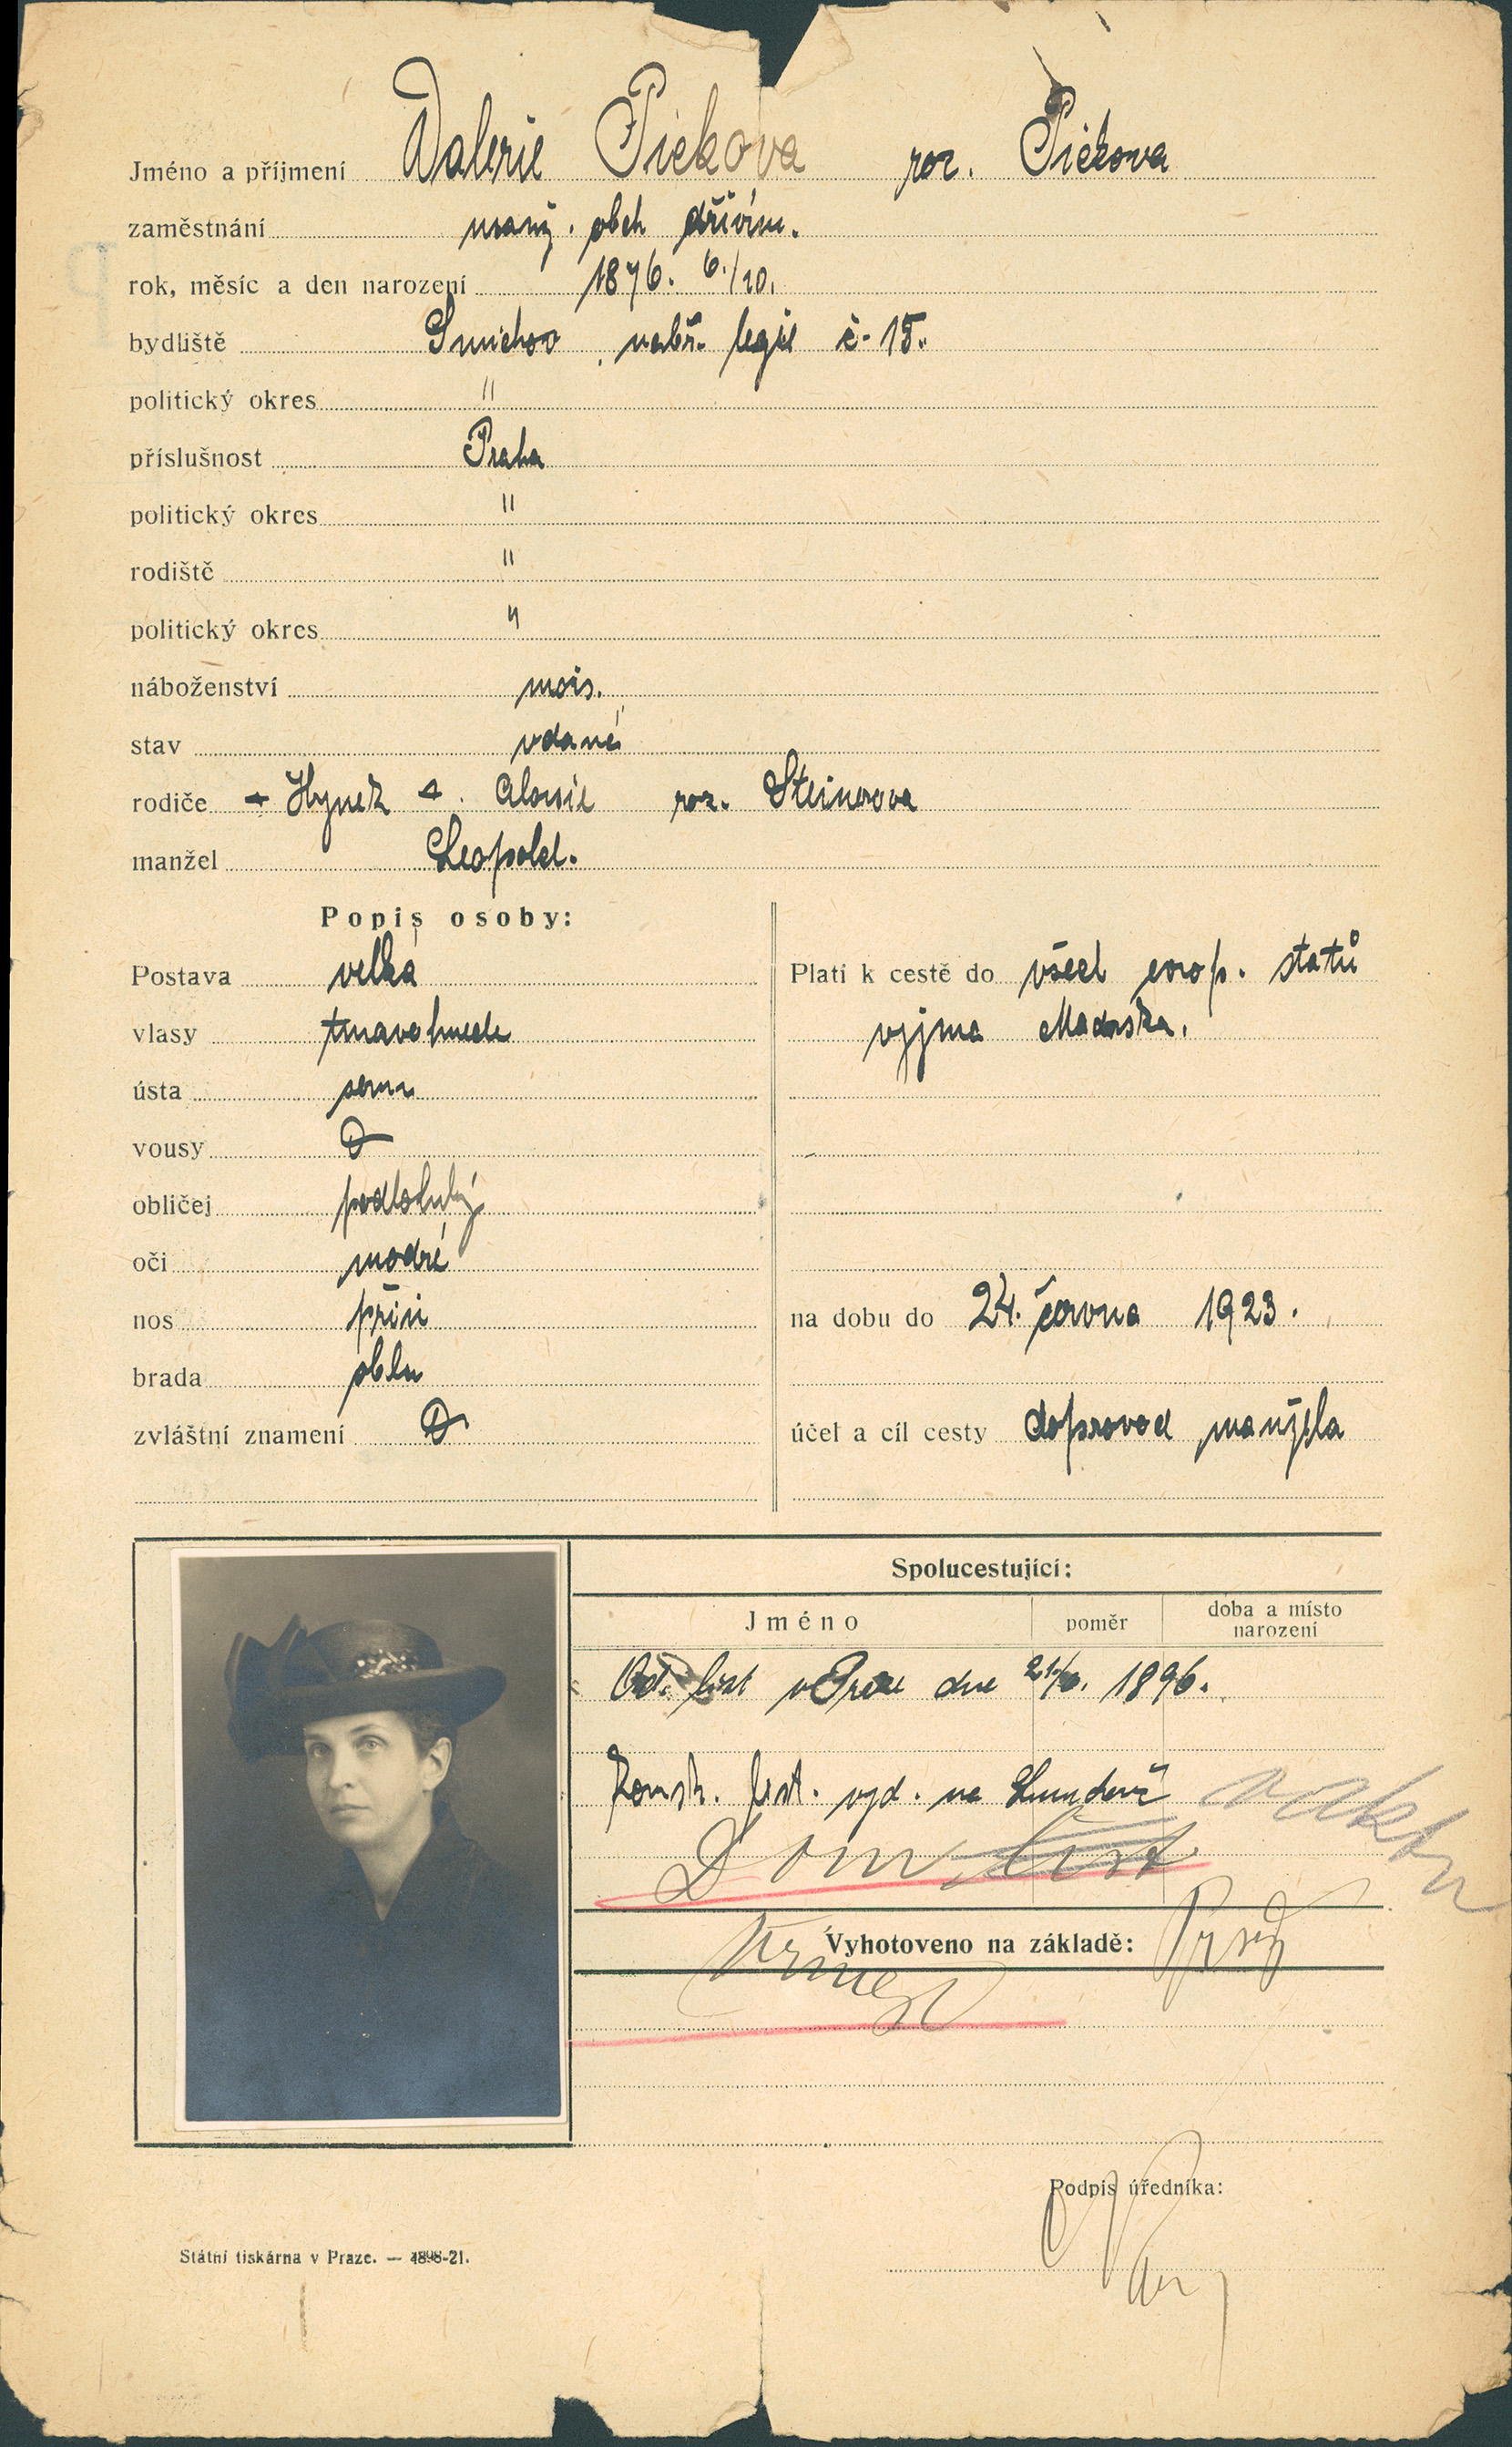 Jméno a příjmení Valerie Pickova roz. Pickova
zaměstnání manž. obch dřívím.
rok, měsíc a den narození 1876. 6./10.
bydliště Smichov nabř. legií č. 15.
politický okres "
příslušnost Praha
politický okres "
rodiště "
politický okres "
náboženství mois.
stav vdaná
rodiče Hynek a Aloisie roz. Steinerova
manžel Leopold.
Popis osoby:
Postava velká
vlasy tmavohnedé
ústa
vousy
obličej podlouhlý
oči modré
nos přím
brada oblá
zvláštní znamení
Platí k cestě do všech evrop. států
vyjma Maďarska.
na dobu do 24. června 1923.
účel a cíl cesty doprovod manžela
Spolucestující:
Jméno poměr doba a místo narození
Od. list v Praze dne 1896.
Konsk. list. vyd. na
Dom. list
Vyhotoveno na základě:
Podpis úředníka:
Státní tiskárna v Praze. — 4898-21.